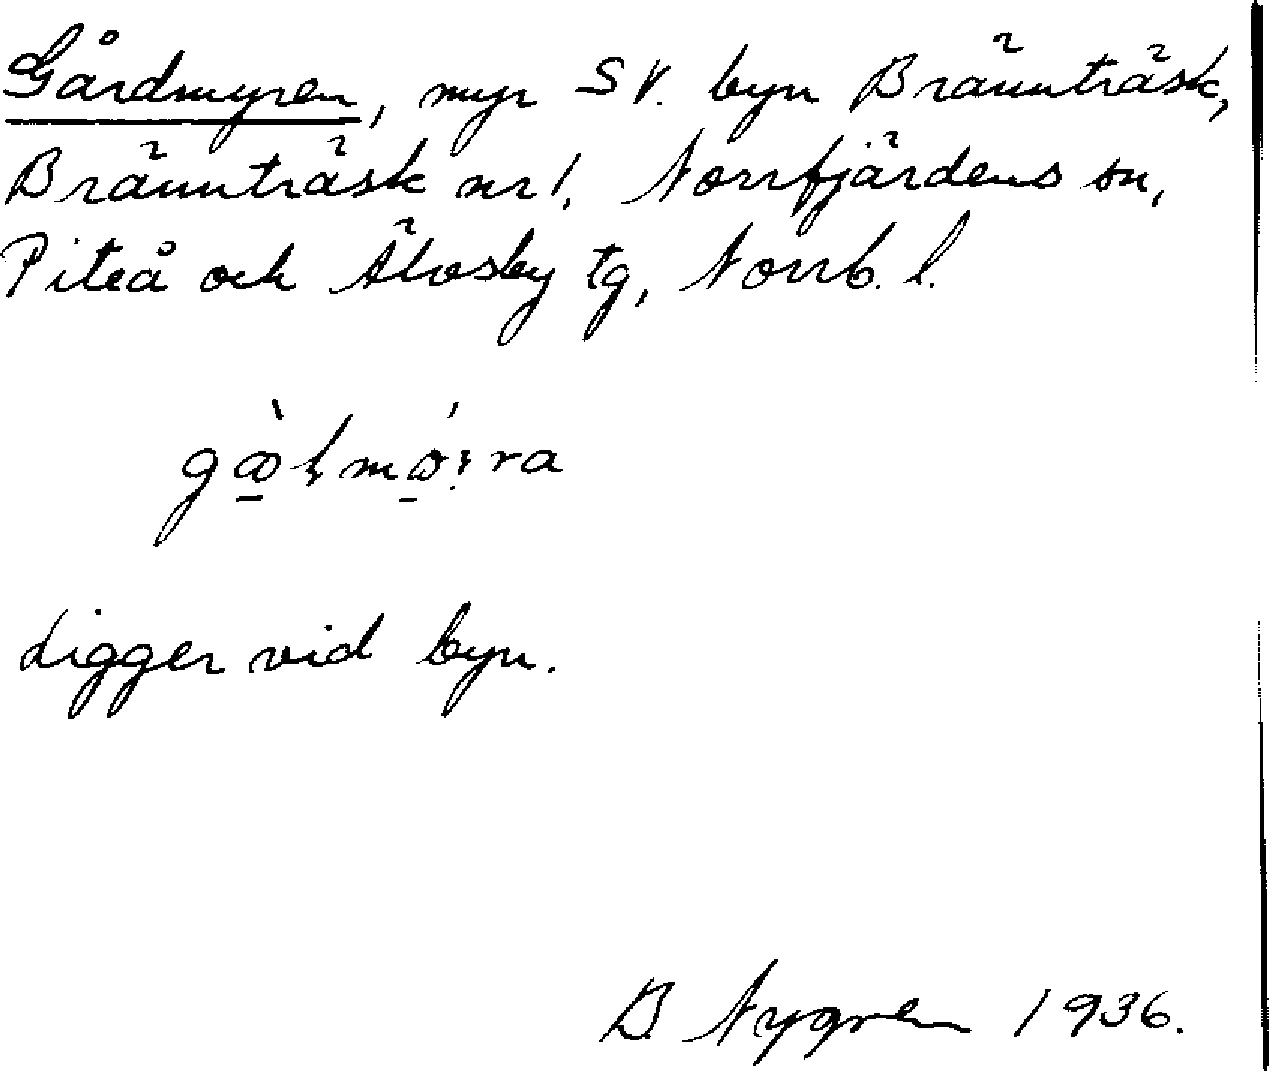 Gårdmyren, myr SV. byn Brännträsk,
Brännträsk nr 1, Norrfjärdens sn,
Piteå och Älvsby tg, Norrb. l.
Ligger vid byn.
B Nygren 1936.